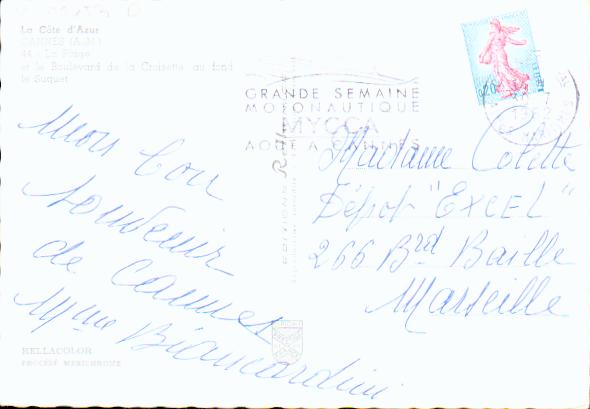 La Côte d'Azur
CANNES (A.-M.)
44 - La Plage
et le Boulevard de la Croisette au fond
le Suquet
GRANDE SEMAINE
MOTONAUTIQUE
MYCCA
AOUT A CANNES
0,20
Mon bon
souvenir
de Cannes
Mme Biancardini
Madame Colette
Dépot "EXCEL"
266 Brd Baille
Marseille
EDITIONS
RELLACOLOR
PROCÉDÉ MERICHROME